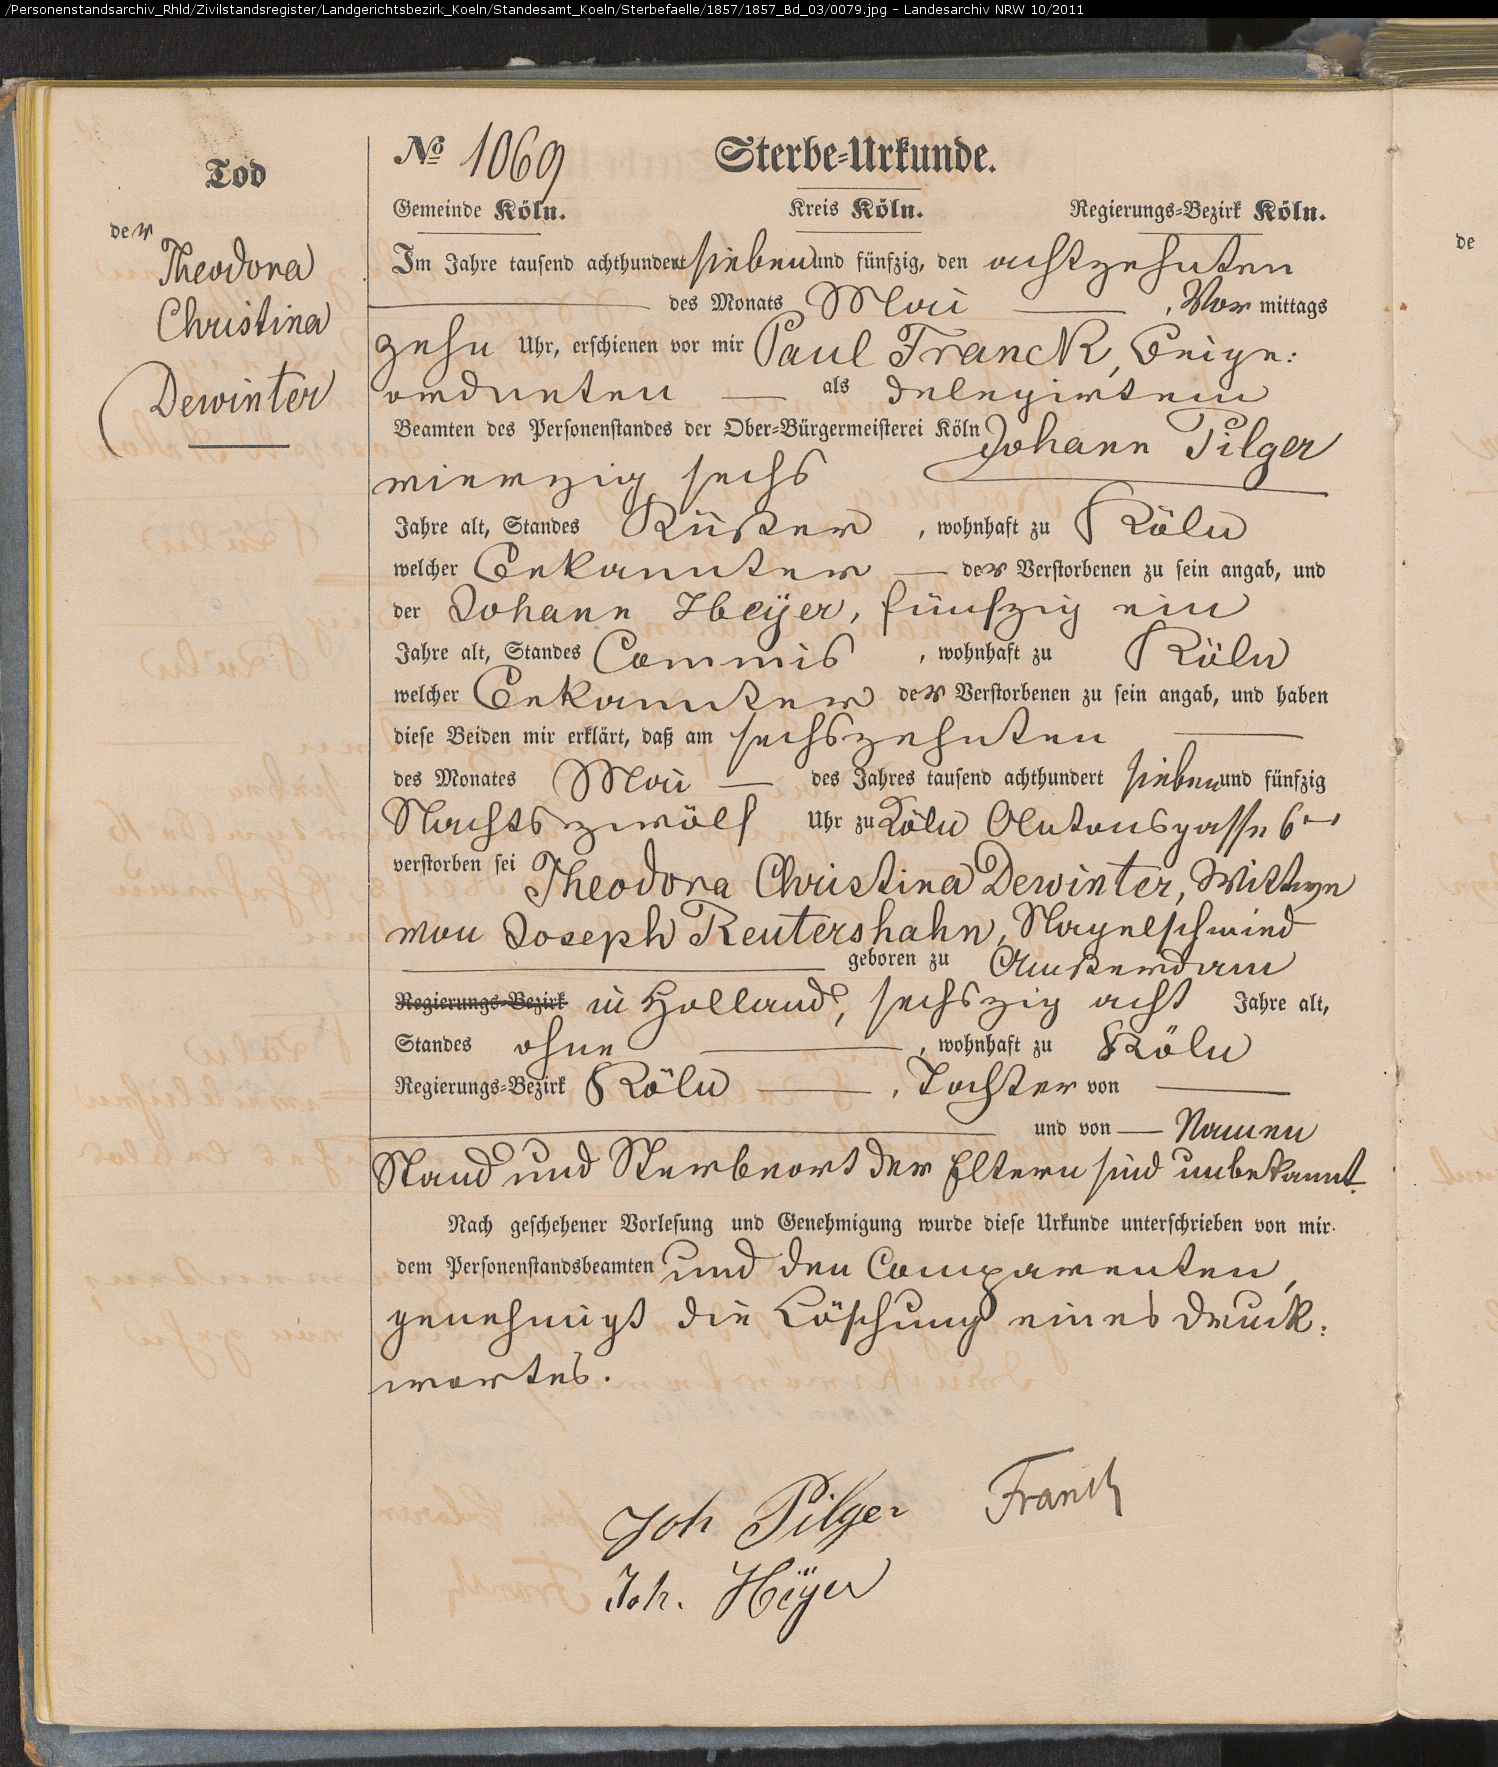 /Personenstandsarchiv_Rhld/Zivilstandsregister/Landgerichtsbezirk_Koeln/Standesamt_Koeln/Sterbefaelle/1857/1857_Bd_03/0079.jpg - Landesarchiv NRW 10/2011
Tod
der
Theodora
Christina
Dewinter
No 1069 Sterbe-Urkunde.
Gemeinde Köln. Kreis Köln. Regierungs-Bezirk Köln.
Im Jahre tausend achthundert sieben und fünfzig, den achtzehnten
des Monats Mai, Vormittags
zehn Uhr, erschienen vor mir Paul Franck, Beige:
ordneten als delegirtem
Beamten des Personenstandes der Ober-Bürgermeisterei Köln Johann Pilger
vierzig sechs
Jahre alt, Standes Küster, wohnhaft zu Köln
welcher Bekannter der Verstorbenen zu sein angab, und
der Johann Heÿer, fünfzig ein
Jahre alt, Standes Commis, wohnhaft zu Köln
welcher Bekannter der Verstorbenen zu sein angab, und haben
diese Beiden mir erklärt, daß am sechszehnten
des Monates Mai des Jahres tausend achthundert sieben und fünfzig
Nachts zwölf Uhr zu Köln Antonsgasse 6
verstorben sei Theodora Christina Dewinter, Wittwe
von Joseph Reutershahn, Nagelschmied
geboren zu Amsterdam
Regierungs-Bezirk in Holland, sechszig acht Jahre alt,
Standes ohne, wohnhaft zu Köln
Regierungs-Bezirk Köln, Tochter von
und von Namen
Stand und Sterbeort der Eltern sind unbekannt.
Nach geschehener Vorlesung und Genehmigung wurde diese Urkunde unterschrieben von mir
dem Personenstandsbeamten und den Comparenten,
genehmigt die Löschung eines Druck:
wortes.
Joh Pilger Franck
Joh. Heÿer
de